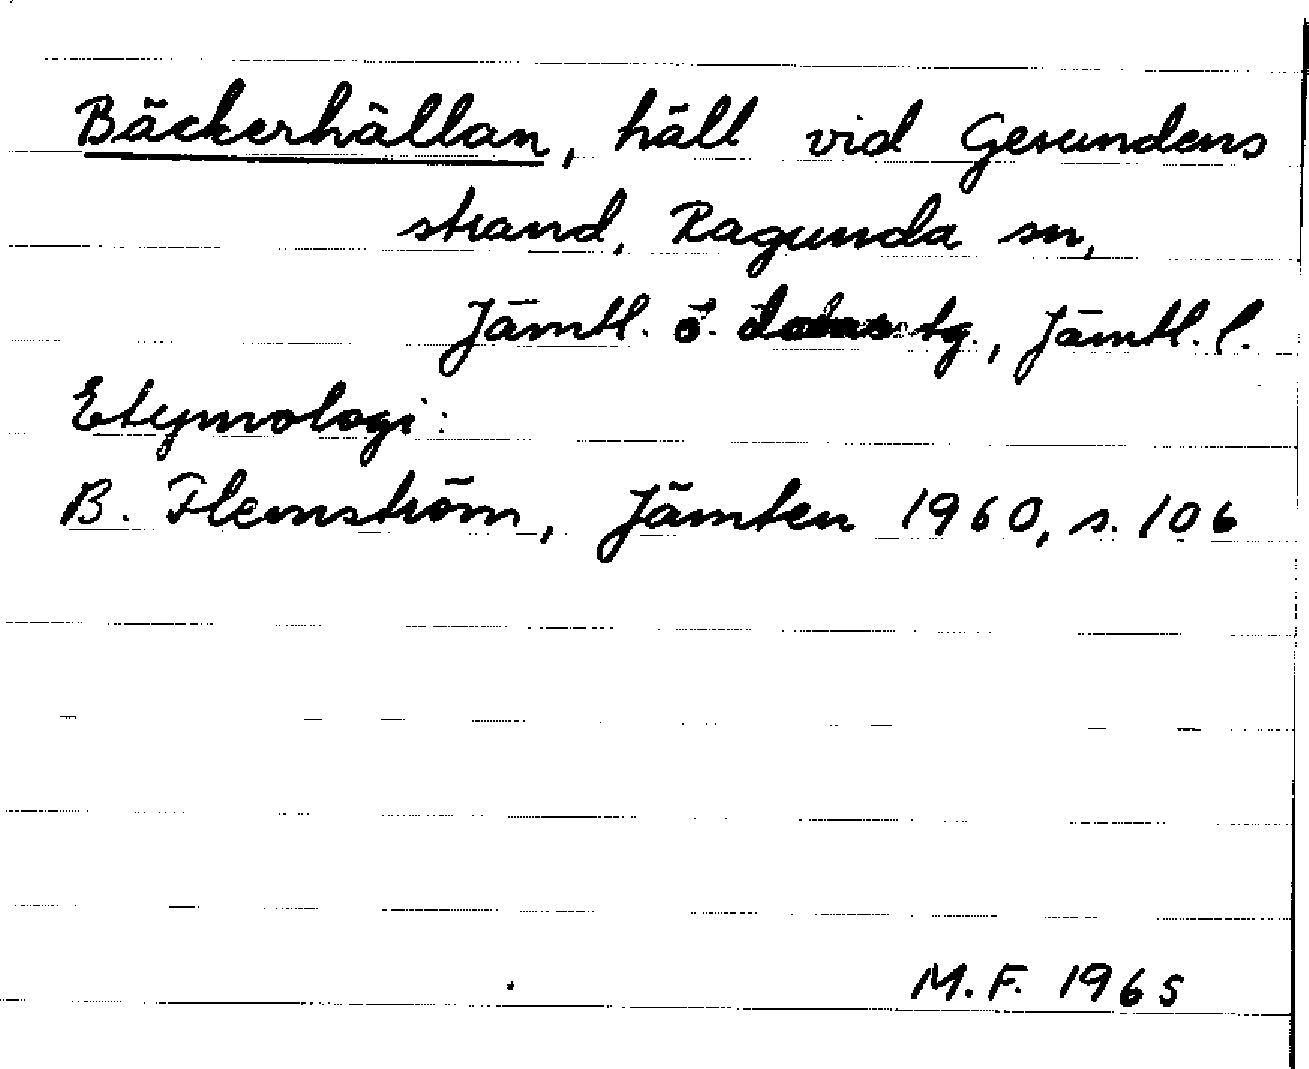 Bäckerhällan, häll vid Gesundens
strand, Ragunda sn,
Jämtl. ö. tg., Jämtl. l.
Etymologi:
B. Flemström, Jämten 1960, s. 106
M.F. 1965